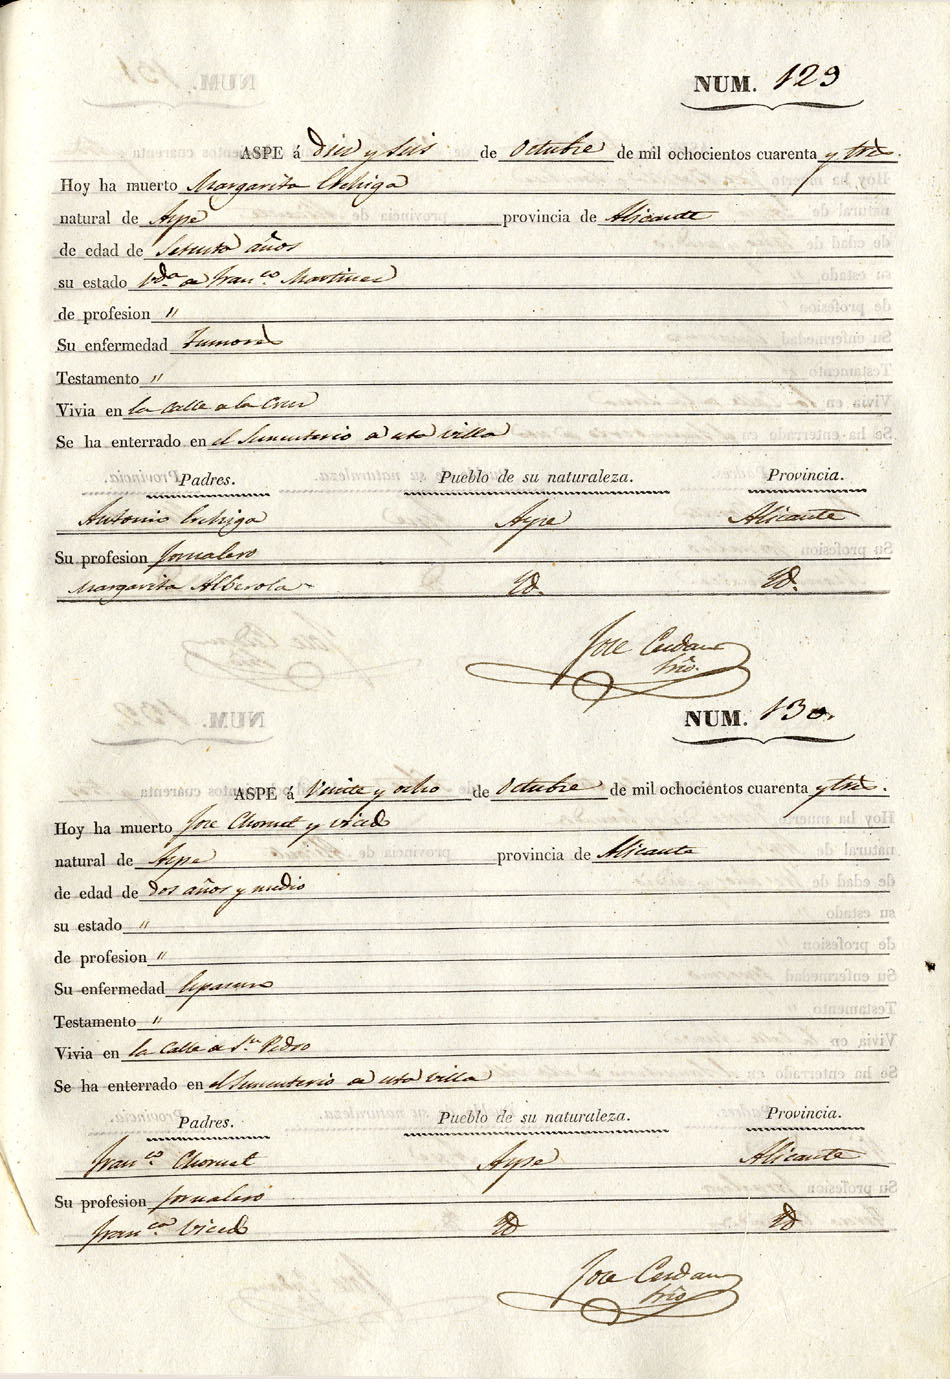 NUM. 129
ASPE á Diez y seis de Octubre de mil ochocientos cuarenta y tres.
Hoy ha muerto Margarita
natural de Aspe provincia de Alicante
de edad de Setenta años
su estado Vda de Franco Martinez
de profesion "
Su enfermedad Tumores
Testamento "
Vivia en la Calle de la Cruz
Se ha enterrado en el Sementerio de esta villa
Padres. Pueblo de su naturaleza. Provincia.
Antonio Aspe Alicante
Su profesion Jornalero
Margarita Alberola Yd. Yd.
Jose Cerdan
Srio.
NUM. 130.
ASPE á Veinte y ocho de Octubre de mil ochocientos cuarenta y tres.
Hoy ha muerto Jose Chornet y Vicedo
natural de Aspe provincia de Alicante
de edad de dos años y medio
su estado "
de profesion "
Su enfermedad
Testamento "
Vivia en la Calle de Sn Pedro
Se ha enterrado en el Sementerio de esta villa
Padres. Pueblo de su naturaleza. Provincia.
Franco Chornet Aspe Alicante
Su profesion Jornalero
Franca Vicedo Yd Yd
Jose Cerdan
Srio